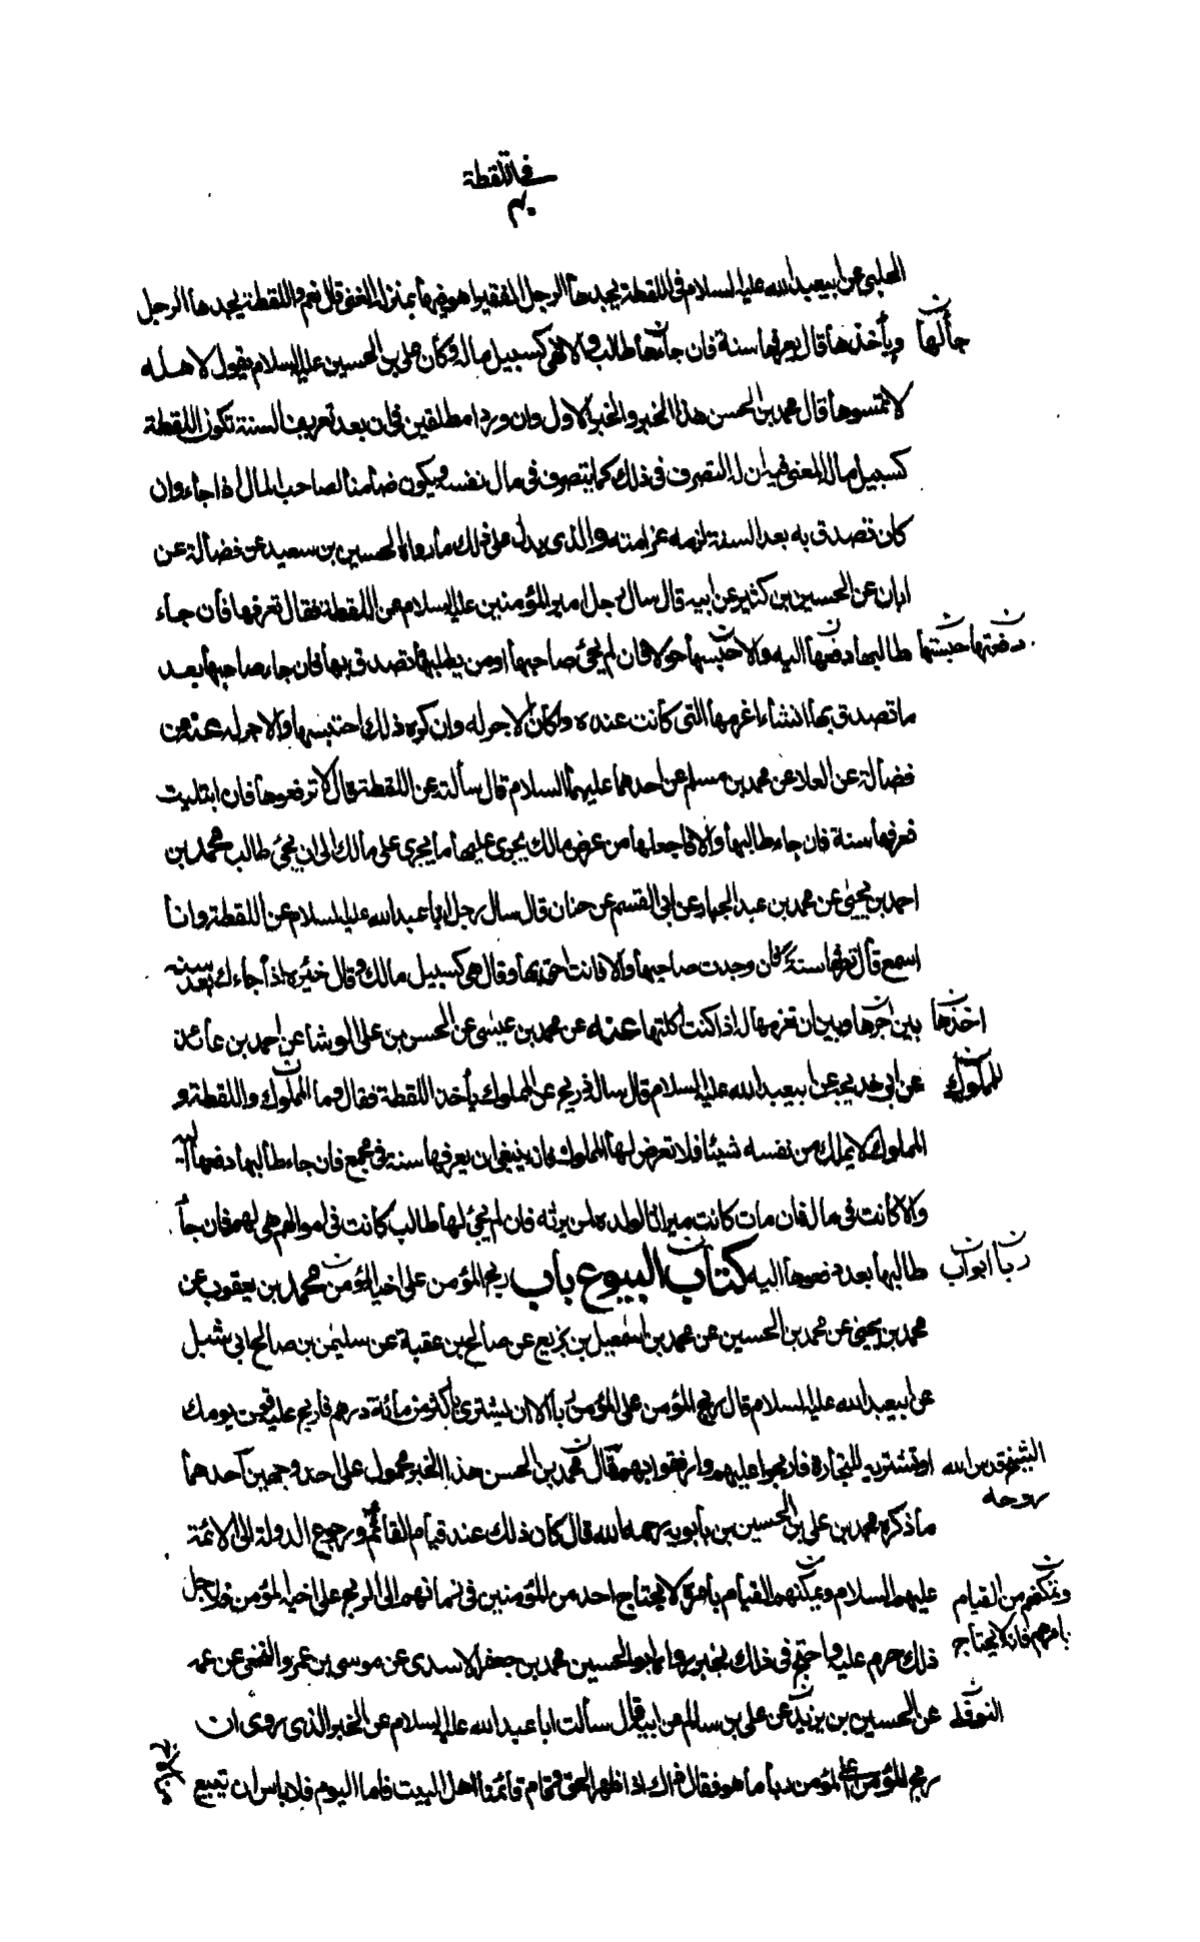 في اللقطة
الحلبي عن ابيعبد الله عليه السلام في اللقطة يجدها الرجل الفقير اهو فيها بمنزلة الغني قال نعم واللقطة يجدها الرجل
ويأخذها قال يعرفها سنة فان جاءها طالب والا فهي كسبيل ماله وكان علي بن الحسين عليه السلام يقول لاهله
جاء لها
لا تمسوها قال محمد بن الحسن هذا الخبر والخبر الاول وان وردا مطلقين في ان بعد تعريف السنة تكون اللقطة
كسبيل ماله المعنى فيه ان له التصرف في ذلك كما يتصرف في مال نفسه ويكون ضامنا لصاحب المال اذا جاء وان
كان تصدق به بعد السنة لزمه غرامته والذي يدل على ذلك ما رواه الحسين بن سعيد عن فضالة عن
ابان عن الحسين بن كثير عن ابيه قال سال رجل امير المؤمنين عليه السلام عن اللقطة فقال تعرفها فان جاء
طالبها دفعها اليه والا حبسها حولا فان لم يجئ صاحبها او من يطلبها تصدق بها فان جاء صاحبها بعد
دفعتها حبستها
ما تصدق بها ان شاء اغرمها التي كانت عنده وكان الاجر له وان كره ذلك احتبسها والاجر له عنه عن
فضالة عن العلا عن محمد بن مسلم عن احدهما عليهما السلام قال سألته عن اللقطة قال لا ترفعوها فان ابتليت
فعرفها سنة فان جاء طالبها والا فاجعلها من عرض مالك يجرى عليها ما يجرى على مالك الى ان يجئ طالب محمد بن
احمد بن يحيى عن محمد بن عبد الجبار عن ابي القسم عن حنان قال سال رجل ابا عبد الله عليه السلام عن اللقطة وانا
اسمع قال تعرفها سنة فان وجدت صاحبها والا فانت احق بها وقال هي كسبيل مالك وقال خيره اذا جاءك بعد سنة
بين اجرها وبين ان تغرمها له اذا كنت اكلتها عنه عن محمد بن عيسى عن الحسن بن علي الوشا عن احمد بن عائذ
اخذها
عن ابي خديجة عن ابيعبد الله عليه السلام قال ساله ذريح عن المملوك يأخذ اللقطة فقال وما المملوك واللقطة و
للمملوك
المملوك لا يملك من نفسه شيئا فلا تعرض لها المملوك فانه ينبغي ان يعرفها سنة في مجمع فان جاء طالبها دفعها اليه
والا كانت في ماله فان مات كانت ميراثا لولده ولمن يرثه فان لم يجئ لها طالب كانت في اموالهم هي لهم فان جا
طالبها بعد دفعوها اليه كتاب البيوع باب ربح المؤمن على اخيه المؤمن محمد بن يعقوب عن
ابواب
محمد بن يحيى عن محمد بن الحسين عن محمد بن اسمعيل بن بزيع عن صالح بن عقبة عن سليمن بن صالح ابي شبل
عن ابيعبد الله عليه السلام قال ربح المؤمن على المؤمن ربا الا ان يشترى باكثر من مائة درهم فاربح عليه قوت يومك
او تشتريه للتجارة فاربحوا عليهم وارفقوا بهم قال محمد بن الحسن هذا الخبر محمول على احد وجهين احدهما
الشيخ قدس الله روحه
ما ذكره محمد بن علي بن الحسين بن بابويه رحمه الله قال كان ذلك عند قيام القائم ورجوع الدولة الى الائمة
عليهم السلام وتمكنهم القيام بامره لا يحتاج احد من المؤمنين في زمانهم الى الربح على اخيه المؤمن ولاجل
وتمكنهم من القيام بامرهم فانه لا يحتاج
ذلك حرم عليه واحتج في ذلك بخبر رواه ابو الحسين محمد بن جعفر الاسدي عن موسى بن عمرو النخعي عن عمه
عن الحسين بن يزيد عن علي بن سالم عن ابيه قال سألت ابا عبد الله عليه السلام عن الخبر الذي روى ان
النوفلي
ربح المؤمن على المؤمن ربا ما هو فقال ذاك اذا ظهر الحق وقام قائمنا اهل البيت فاما اليوم فلا باس ان تبيع